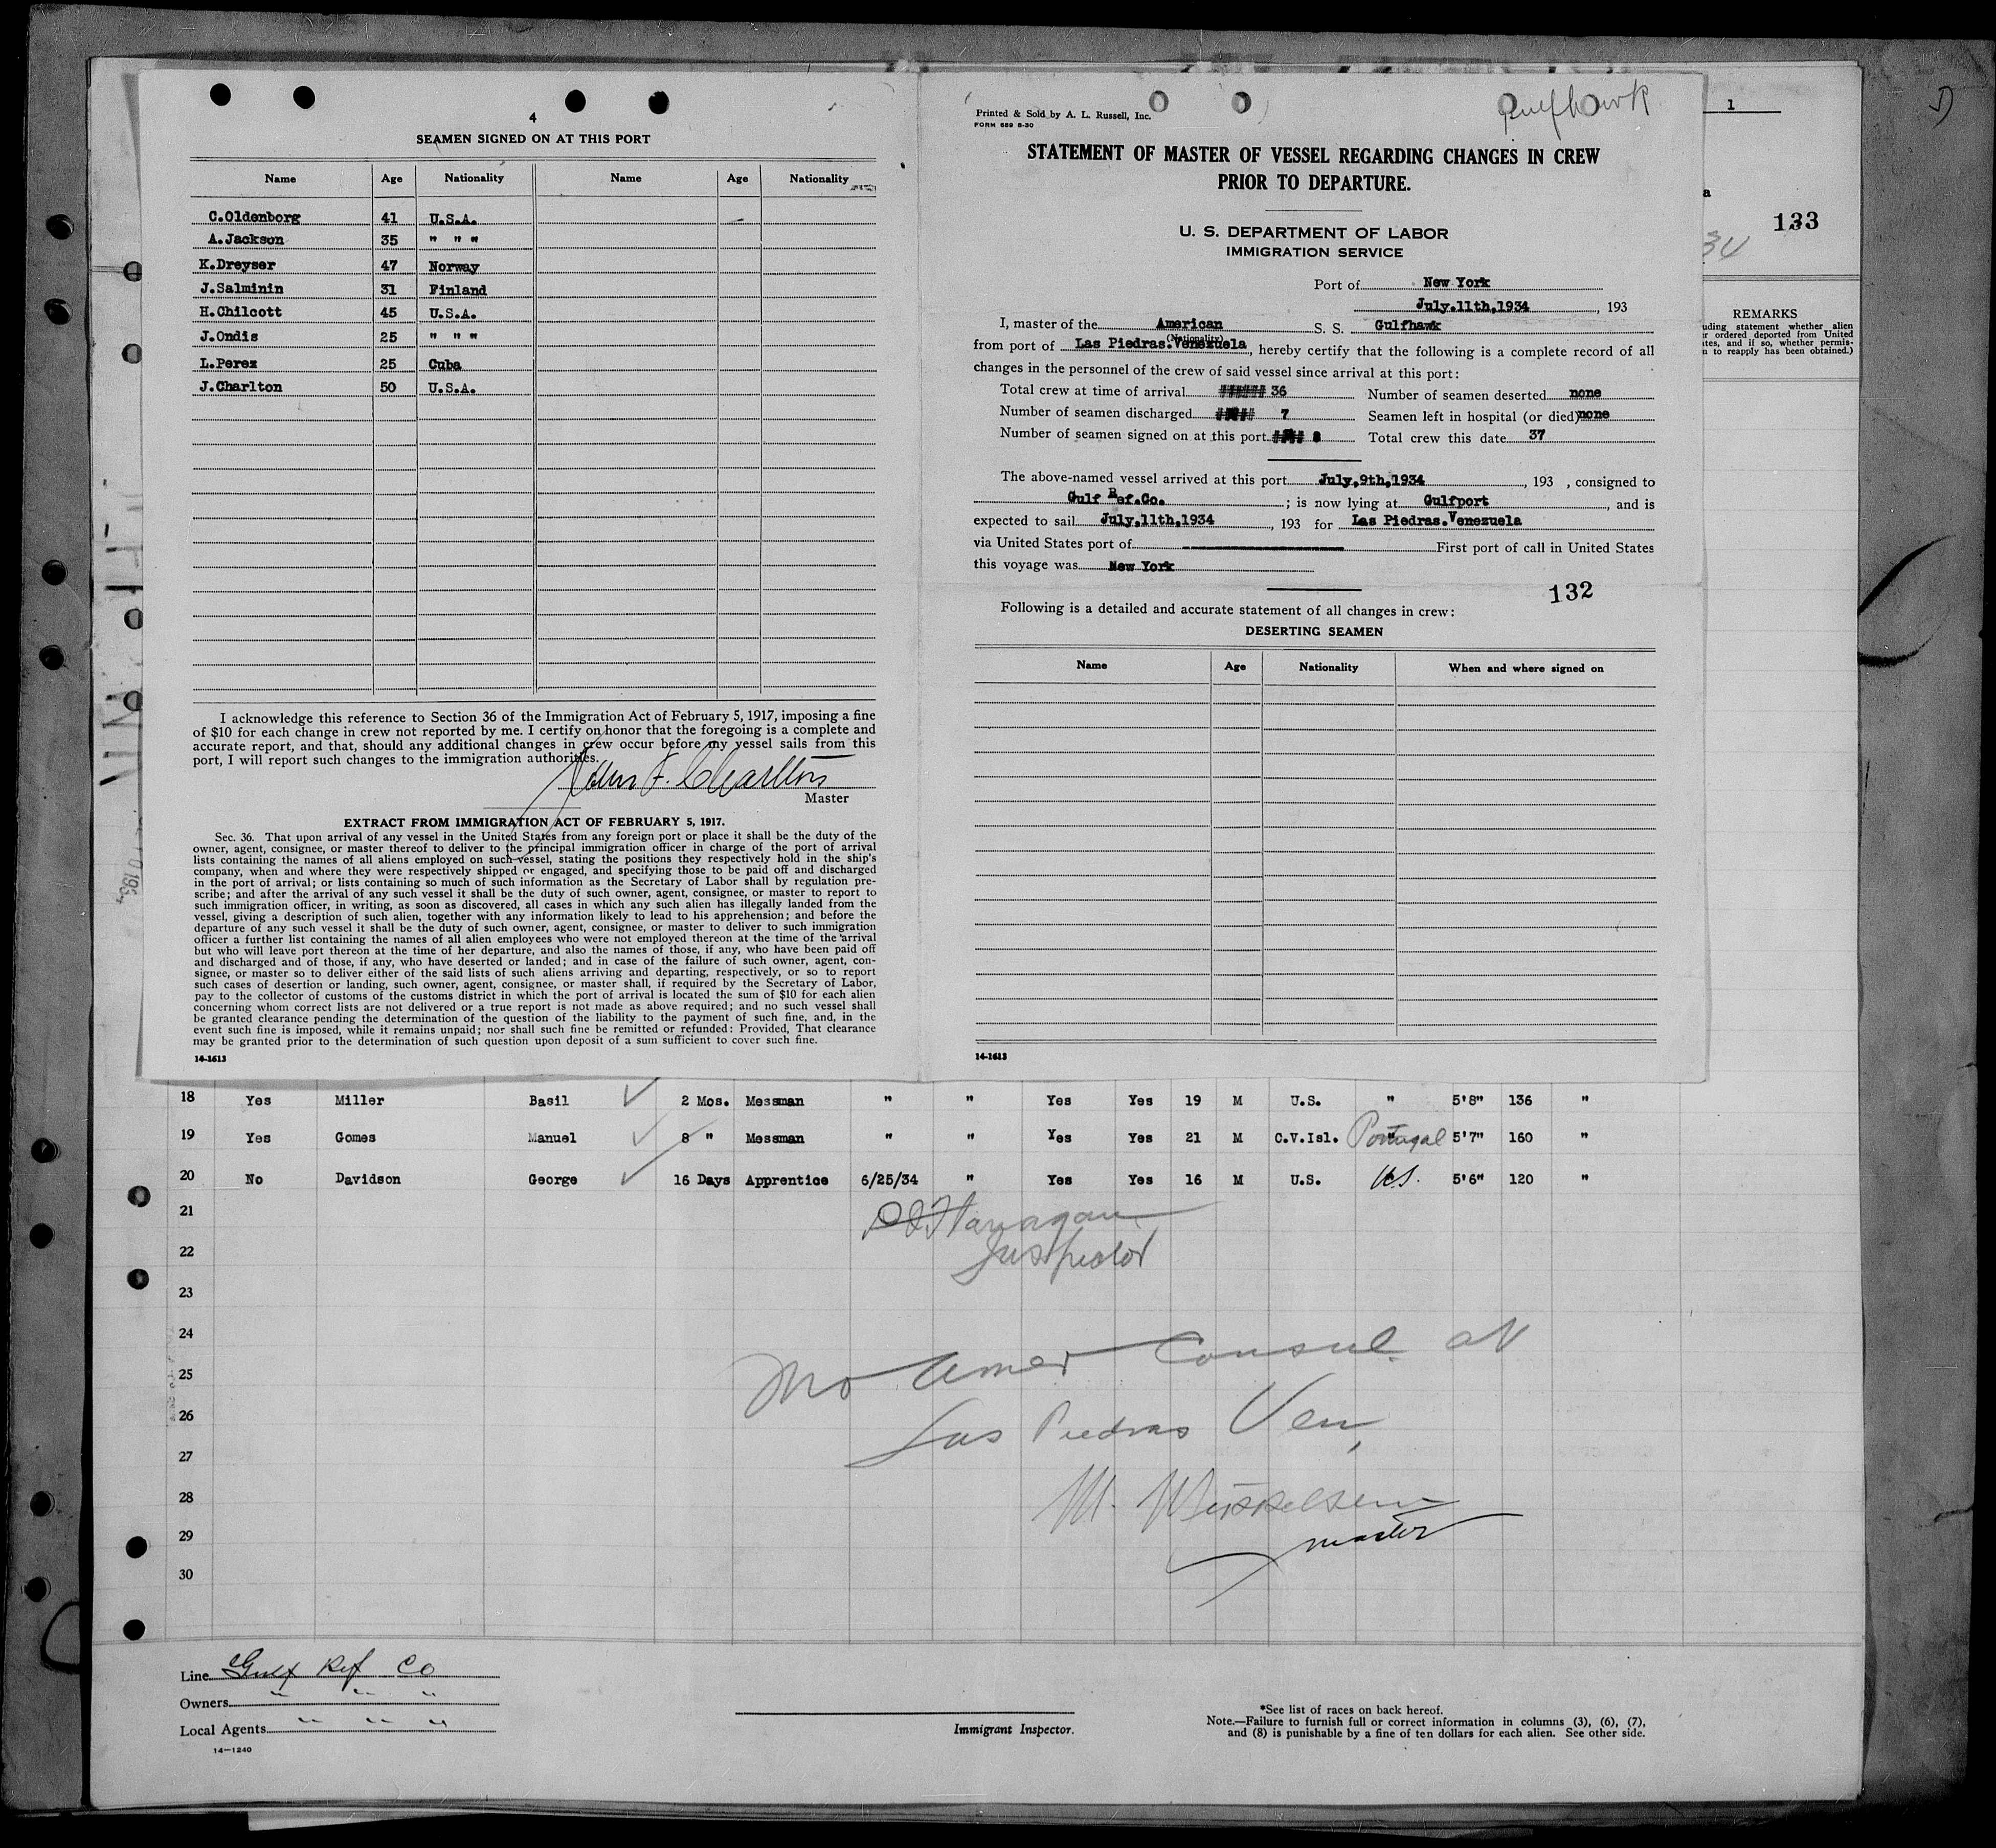 4
SEAMEN SIGNED ON AT THIS PORT
Name Age Nationality Name Age Nationality
C.Oldenborg 41 U.S.A.
A.Jackson 35 " " "
K.Dreyser 47 Norway
J.Salminin 31 Finland
H.Chilcott 45 U.S.A.
J.Ondis 25 " " "
L.Perez 25 Cuba
J.Charlton 50 U.S.A.
I acknowledge this reference to Section 36 of the Immigration Act of February 5, 1917, imposing a fine
of $10 for each change in crew not reported by me. I certify on honor that the foregoing is a complete and
accurate report, and that, should any additional changes in crew occur before my vessel sails from this
port, I will report such changes to the immigration authorities.
John F. Charlton
Master
EXTRACT FROM IMMIGRATION ACT OF FEBRUARY 5, 1917.
Sec. 36. That upon arrival of any vessel in the United States from any foreign port or place it shall be the duty of the
owner, agent, consignee, or master thereof to deliver to the principal immigration officer in charge of the port of arrival
lists containing the names of all aliens employed on such vessel, stating the positions they respectively hold in the ship's
company, when and where they were respectively shipped or engaged, and specifying those to be paid off and discharged
in the port of arrival; or lists containing so much of such information as the Secretary of Labor shall by regulation pre-
scribe; and after the arrival of any such vessel it shall be the duty of such owner, agent, consignee, or master to report to
such immigration officer, in writing, as soon as discovered, all cases in which any such alien has illegally landed from the
vessel, giving a description of such alien, together with any information likely to lead to his apprehension; and before the
departure of any such vessel it shall be the duty of such owner, agent, consignee, or master to deliver to such immigration
officer a further list containing the names of all alien employees who were not employed thereon at the time of the arrival
but who will leave port thereon at the time of her departure, and also the names of those, if any, who have been paid off
and discharged and of those, if any, who have deserted or landed; and in case of the failure of such owner, agent, con-
signee, or master so to deliver either of the said lists of such aliens arriving and departing, respectively, or so to report
such cases of desertion or landing, such owner, agent, consignee, or master shall, if required by the Secretary of Labor,
pay to the collector of customs of the customs district in which the port of arrival is located the sum of $10 for each alien
concerning whom correct lists are not delivered or a true report is not made as above required; and no such vessel shall
be granted clearance pending the determination of the question of the liability to the payment of such fine, and, in the
event such fine is imposed, while it remains unpaid; nor shall such fine be remitted or refunded: Provided, That clearance
may be granted prior to the determination of such question upon deposit of a sum sufficient to cover such fine.
14-1613
Printed & Sold by A. L. Russell, Inc.
FORM 689 8-30
Gulfhawk
STATEMENT OF MASTER OF VESSEL REGARDING CHANGES IN CREW
PRIOR TO DEPARTURE.
U. S. DEPARTMENT OF LABOR
IMMIGRATION SERVICE
Port of New York
July.11th,1934, 193
I, master of the American S. S. Gulfhawk
(Nationality)
from port of Las Piedras.Venezuela, hereby certify that the following is a complete record of all
changes in the personnel of the crew of said vessel since arrival at this port:
Total crew at time of arrival 36 Number of seamen deserted none
Number of seamen discharged 7 Seamen left in hospital (or died) none
Number of seamen signed on at this port 8 Total crew this date 37
The above-named vessel arrived at this port July,9th,1934, 193 , consigned to
Gulf Ref.Co. ; is now lying at Gulfport, and is
expected to sail July,11th,1934, 193 for Las Piedras.Venezuela
via United States port of First port of call in United States
this voyage was New York
132
Following is a detailed and accurate statement of all changes in crew:
DESERTING SEAMEN
Name Age Nationality When and where signed on
14-1613
1
a
133
34
REMARKS
uding statement whether alien
r ordered deported from United
tes, and if so, whether permis-
n to reapply has been obtained.)
18 Yes Miller Basil 2 Mos. Messman " " Yes Yes 19 M U.S. " 5'8" 136 "
19 Yes Gomes Manuel 8 " Messman " " Yes Yes 21 M C.V.Isl. Portugal 5'7" 160 "
20 No Davidson George 16 Days Apprentice 6/25/34 " Yes Yes 16 M U.S. U.S. 5'6" 120 "
21
22 Inspector
23
24
25 No Amer Consul at
26 Las Piedras Ven,
27
28
29 master
30
Line Gulf Ref Co
Owners " " "
Local Agents " " "
14-1240
Immigrant Inspector.
*See list of races on back hereof.
Note.—Failure to furnish full or correct information in columns (3), (6), (7),
and (8) is punishable by a fine of ten dollars for each alien. See other side.